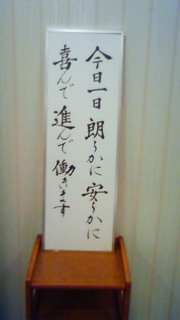 今日一日 朗らかに 安らかに
喜んで 進んで 働きます